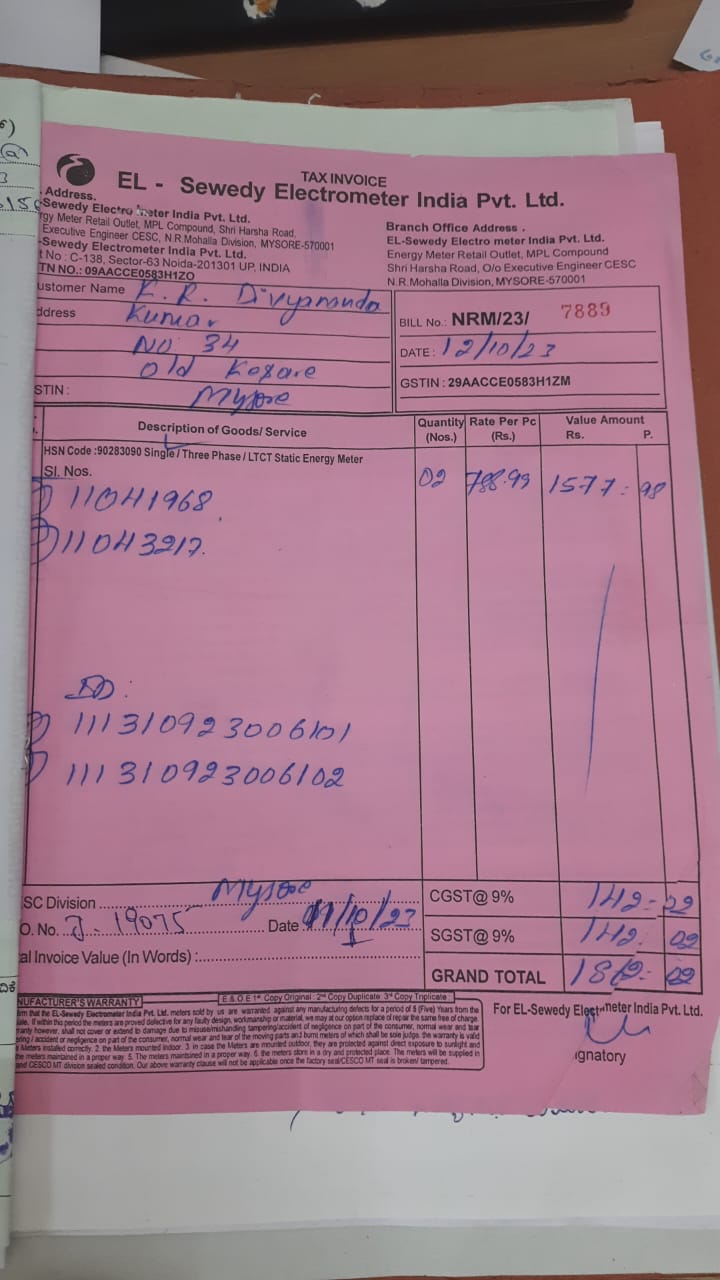 TAX INVOICE
EL - Sewedy Electrometer India Pvt. Ltd.
Address.
-Sewedy Electro meter India Pvt. Ltd.
rgy Meter Retail Outlet, MPL Compound, Shri Harsha Road,
Executive Engineer CESC, N.R.Mohalla Division, MYSORE-570001
-Sewedy Electrometer India Pvt. Ltd.
t No : C-138, Sector-63 Noida-201301 UP, INDIA
TN NO.: 09AACCE0583H1ZO
Branch Office Address .
EL-Sewedy Electro meter India Pvt. Ltd.
Energy Meter Retail Outlet, MPL Compound
Shri Harsha Road, O/o Executive Engineer CESC
N.R.Mohalla Division, MYSORE-570001
ustomer Name K. R. Divyananda
ddress Kumar
NO 34
Old Kesare
STIN : Mysore
BILL No.: NRM/23/ 7889
DATE : 12/10/23
GSTIN : 29AACCE0583H1ZM
Description of Goods/ Service Quantity (Nos.) Rate Per Pc (Rs.) Value Amount Rs. P.
HSN Code :90283090 Single / Three Phase / LTCT Static Energy Meter
Sl. Nos. 02 788.99 1577 : 98
11041968
11043217.
111310923006101
111310923006102
SC Division Mysore
O. No. J - 19075 Date 11/10/23
al Invoice Value (In Words) :
CGST@ 9% 142 - 02
SGST@ 9% 142 . 02
GRAND TOTAL 1862 - 02
E & O.E 1st Copy Original : 2nd Copy Duplicate 3rd Copy Triplicate
NUFACTURER'S WARRANTY
irm that the EL-Sewedy Electrometer India Pvt. Ltd. meters sold by us are warranted against any manufacturing defects for a period of 5 (Five) Years from the
sale. If within this period the meters are proved defective for any faulty design, workmanship or material, we may at our option replace of repair the same free of charge.
ranty however, shall not cover or extend to damage due to misuse/mishandling tampering/accident of negligence on part of the consumer, normal wear and tear
ering / accident or negligence on part of the consumer, normal wear and tear of the moving parts and burnt meters of which shall be sole judge. the warranty is valid
Meters installed correctly. 2. the Meters mounted indoor. 3. in case the Meters are mounted outdoor, they are protected against direct exposure to sunlight and
the meters maintained in a proper way. 5. The meters maintained in a proper way. 6. the meters store in a dry and protected place. The meters will be supplied in
and CESCO MT division sealed condition. Our above warranty clause will not be applicable once the factory seal/CESCO MT seal is broken/ tampered.
For EL-Sewedy Electrometer India Pvt. Ltd.
ignatory